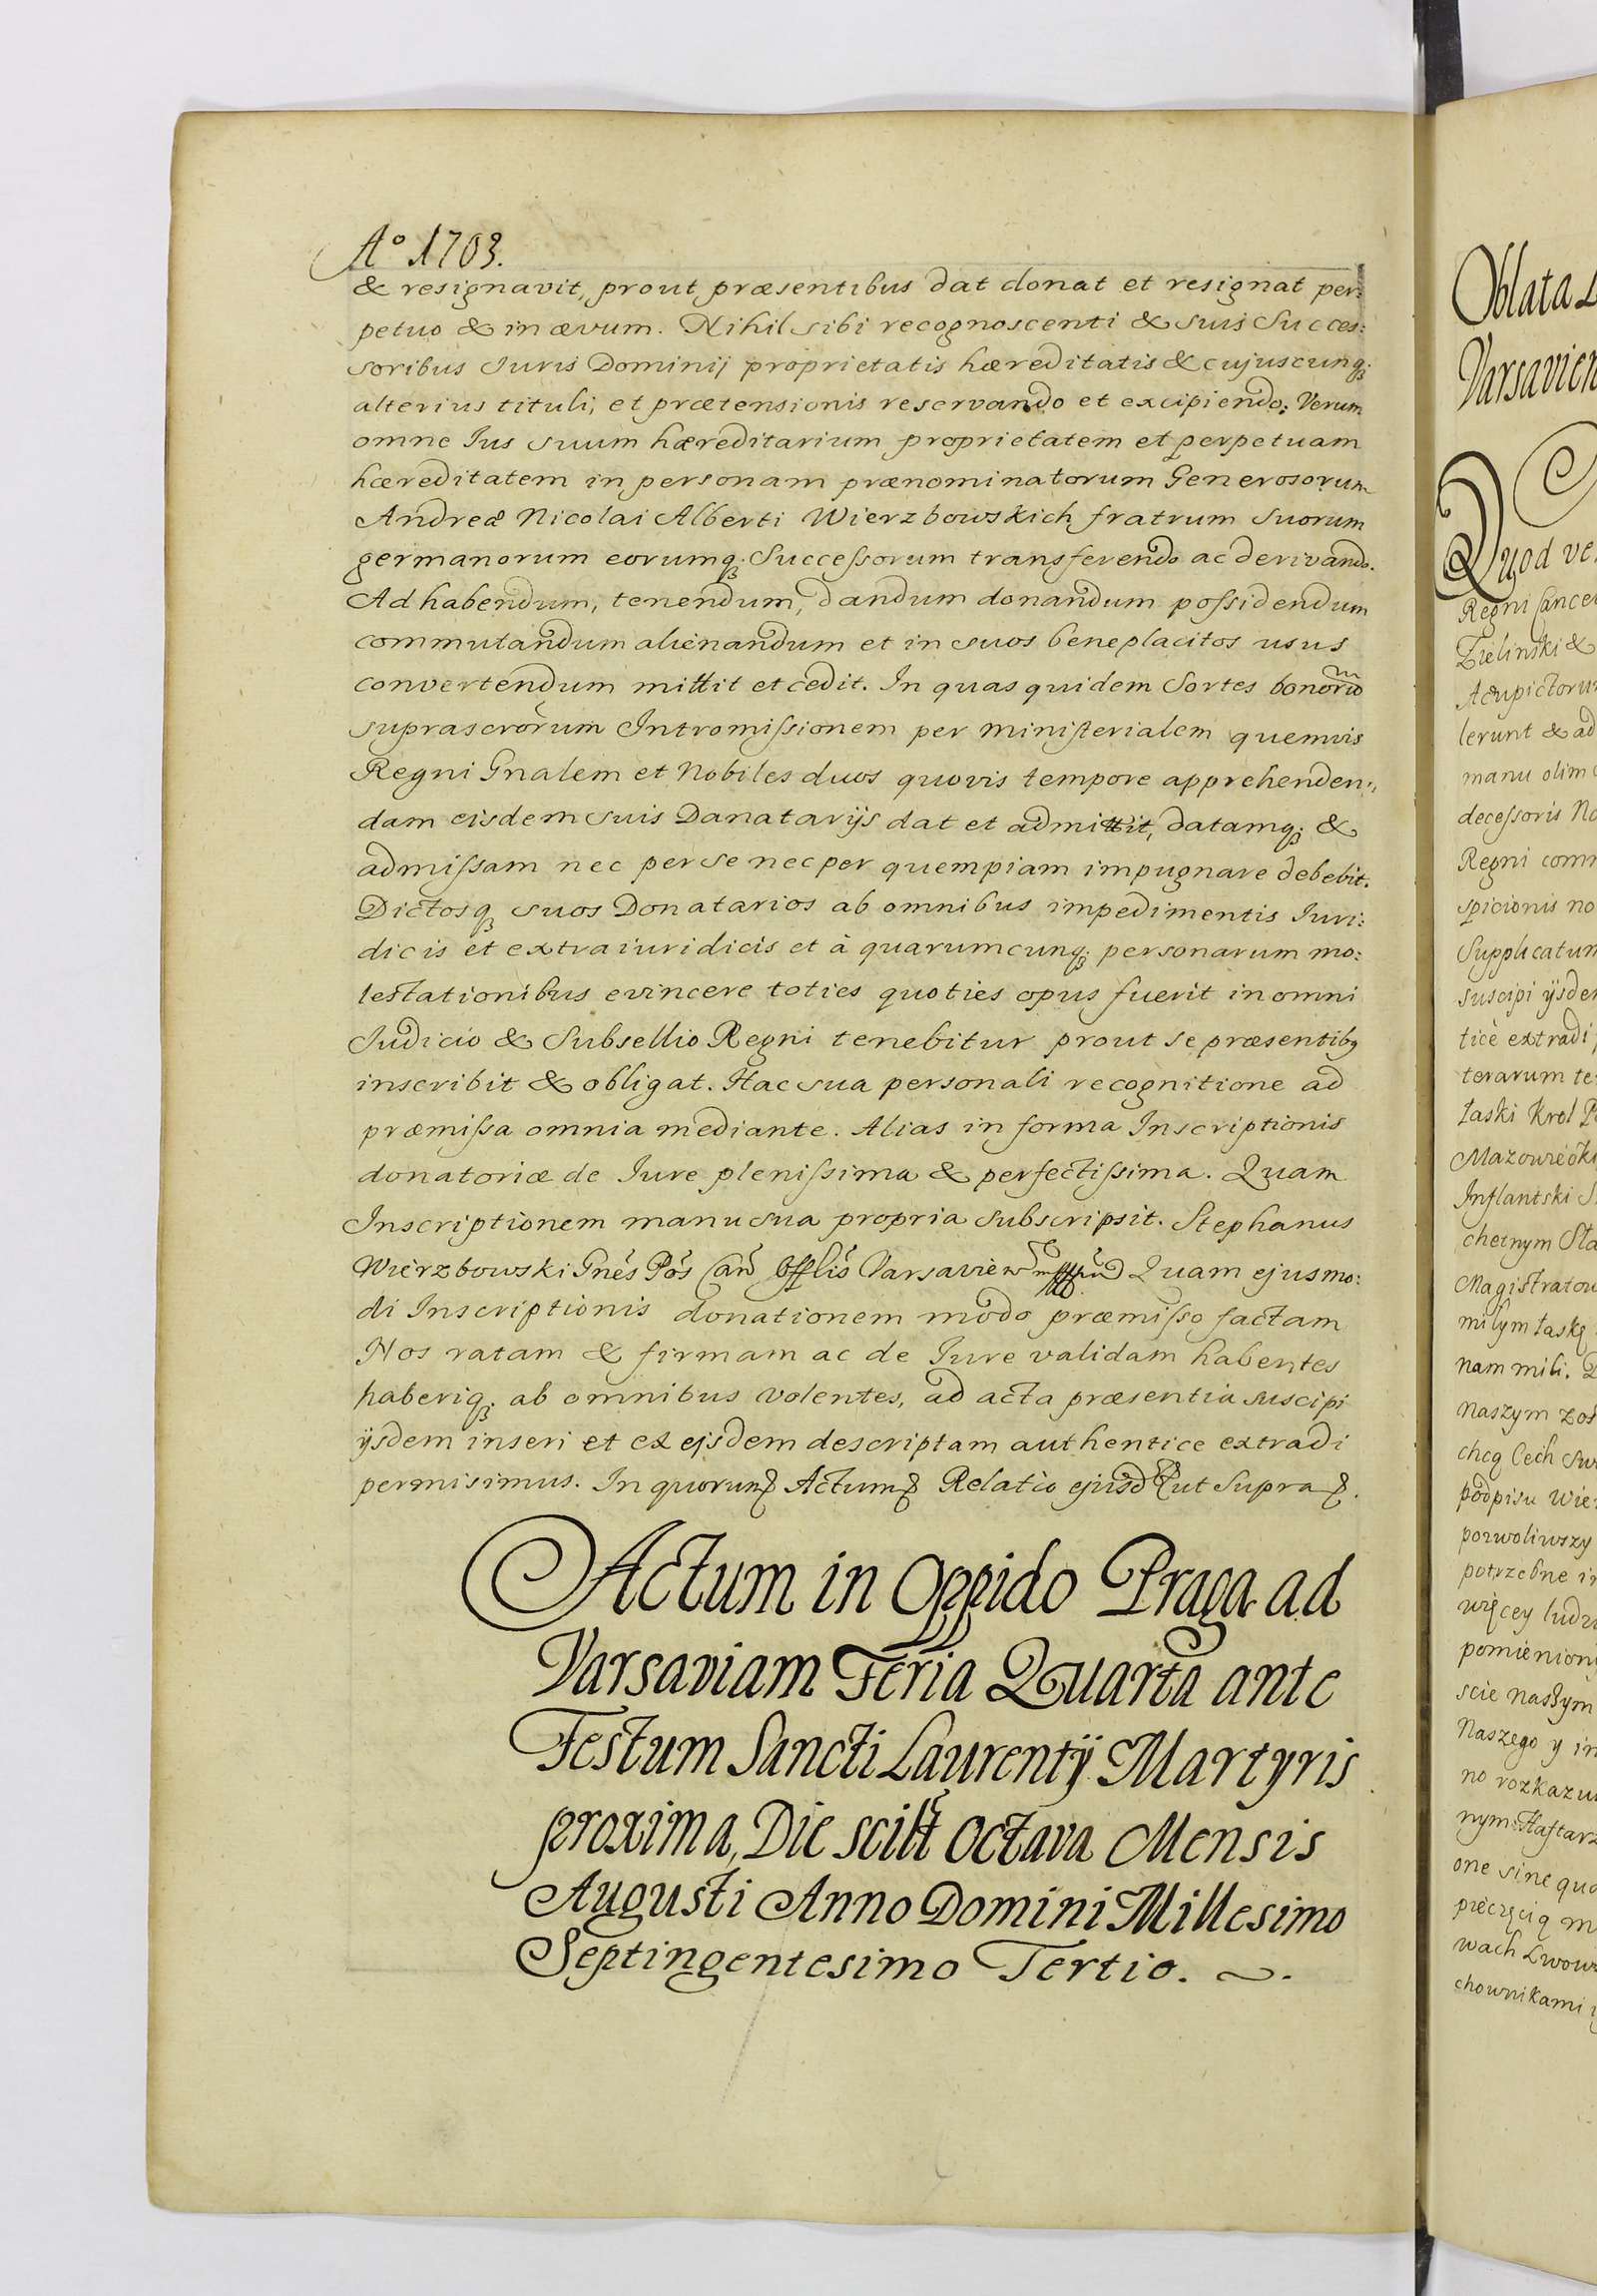 Aº 1703.
& resignavit, prout præsentibus dat donat et resignat per:
petuo & in ævum. Nihil sibi recognoscenti & suis Succes:
soribus Iuris Dominij proprietatis hæreditatis & cujuscunq;
alterius tituli, et prætensionis reservando et excipiendo: Verum
omne Ius suum hæreditarium proprietatem et perpetuam
hæreditatem in personam prænominatorum Generosorum
Andreæ Nicolai Alberti Wierzbowskich fratrum suorum
germanorum eorumq; Successorum transferendo ac derivando.
Ad habendum, tenendum, dandum donandum possidendum
commutandum alienandum et in suos beneplacitos usus
convertendum mittit et cedit. In quas quidem Sortes
suprascrorum Intromissionem per ministerialem quemvis
Regni Gnalem et Nobiles duos quovis tempore apprehenden,,
dam eisdem suis Danatarijs dat et admittit, datamq; &
admissam nec per se nec per quempiam impugnare debebit.
Dictosq; suos Donatarios ab omnibus impedimentis Iuri:
dicis et extraiuridicis et à quarumcunq; personarum mo:
lestationibus evincere toties quoties opus fuerit in omni
Judicio & Subsellio Regni tenebitur prout se præsentibq
inscribit & obligat. Hac sua personali recognitione ad
præmissa omnia mediante. Alias in forma Inscriptionis
donatoriæ de Iure plenissima & perfectissima. Quam
Inscriptionem manu sua propria subscripsit. Stephanus
Wierzbowski Gnés Pós Quam ejusmo:
di Inscriptionis donationem modo præmisso factam
Nos ratam & firmam ac de Iure validam habentes
haberiq; ab omnibus volentes, ad acta præsentia suscipi
ijsdem inseri et ex ejsdem descriptam authentice extradi
permisimus. In quorum Actum Relatio ejusd ut Supra
Actum in Oppido Praga ad
Varsaviam Feria Quarta ante
Festum Sancti Laurentij Martyris
proxima, Die scilt Octava Mensis
Augusti Anno Domini Millesimo
Septingentesimo Tertio. ~.
Oblata
Varsavien
Quod
Regni
Zielinski &
lerunt & ad
manu olim
decessoris
Regni
spicionis
Supplicatum
suscipi ijsdem
tice extradi
terarum
łaski Krol
Inflantski
chetnym
milym łaskę
nam mili.
naszym
chcą Cech
podpisu
pozwoliwszy
potrzebne
więcey
pomienioni
scie naszym
Naszego y
no
one sine
pieczęcią
wach
chownikami